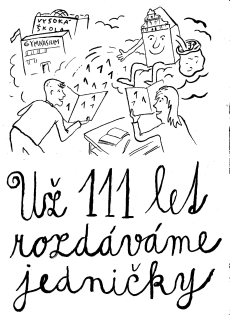 VYSOKÁ
ŠKOLA
GYMNASIUM
1 1
Už 111 let
rozdáváme
jedničky